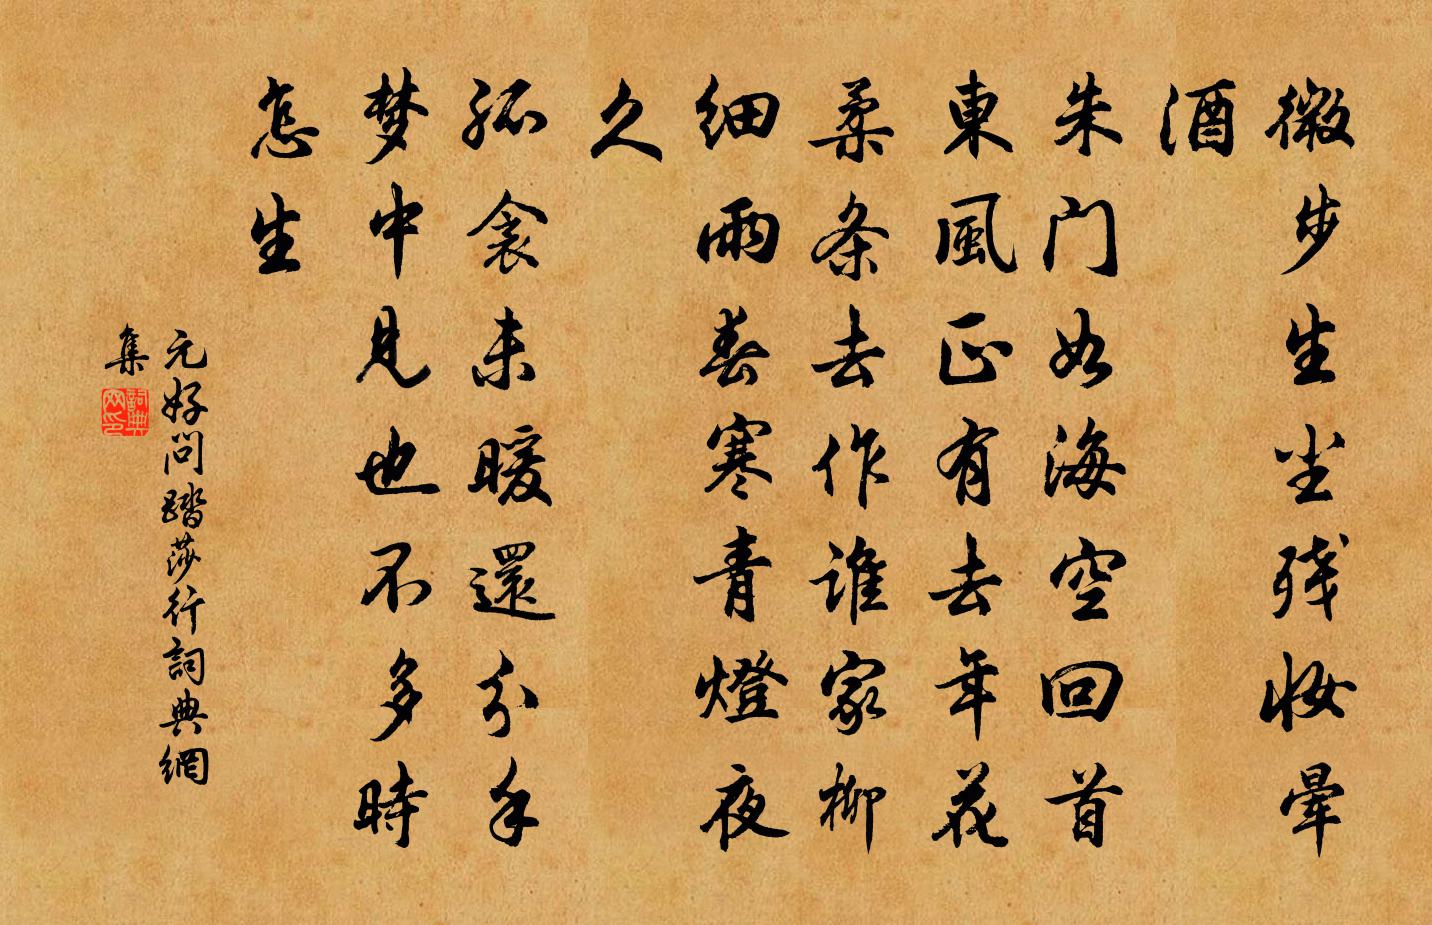 微步生尘残妆晕
酒
朱门如海空回首
東風正有去年花
柔条去作谁家柳
细雨春寒青燈夜
久
孤衾未暖還分手
梦中见也不多時
怎生
元好问踏莎行詞典網
集
詞典
网印